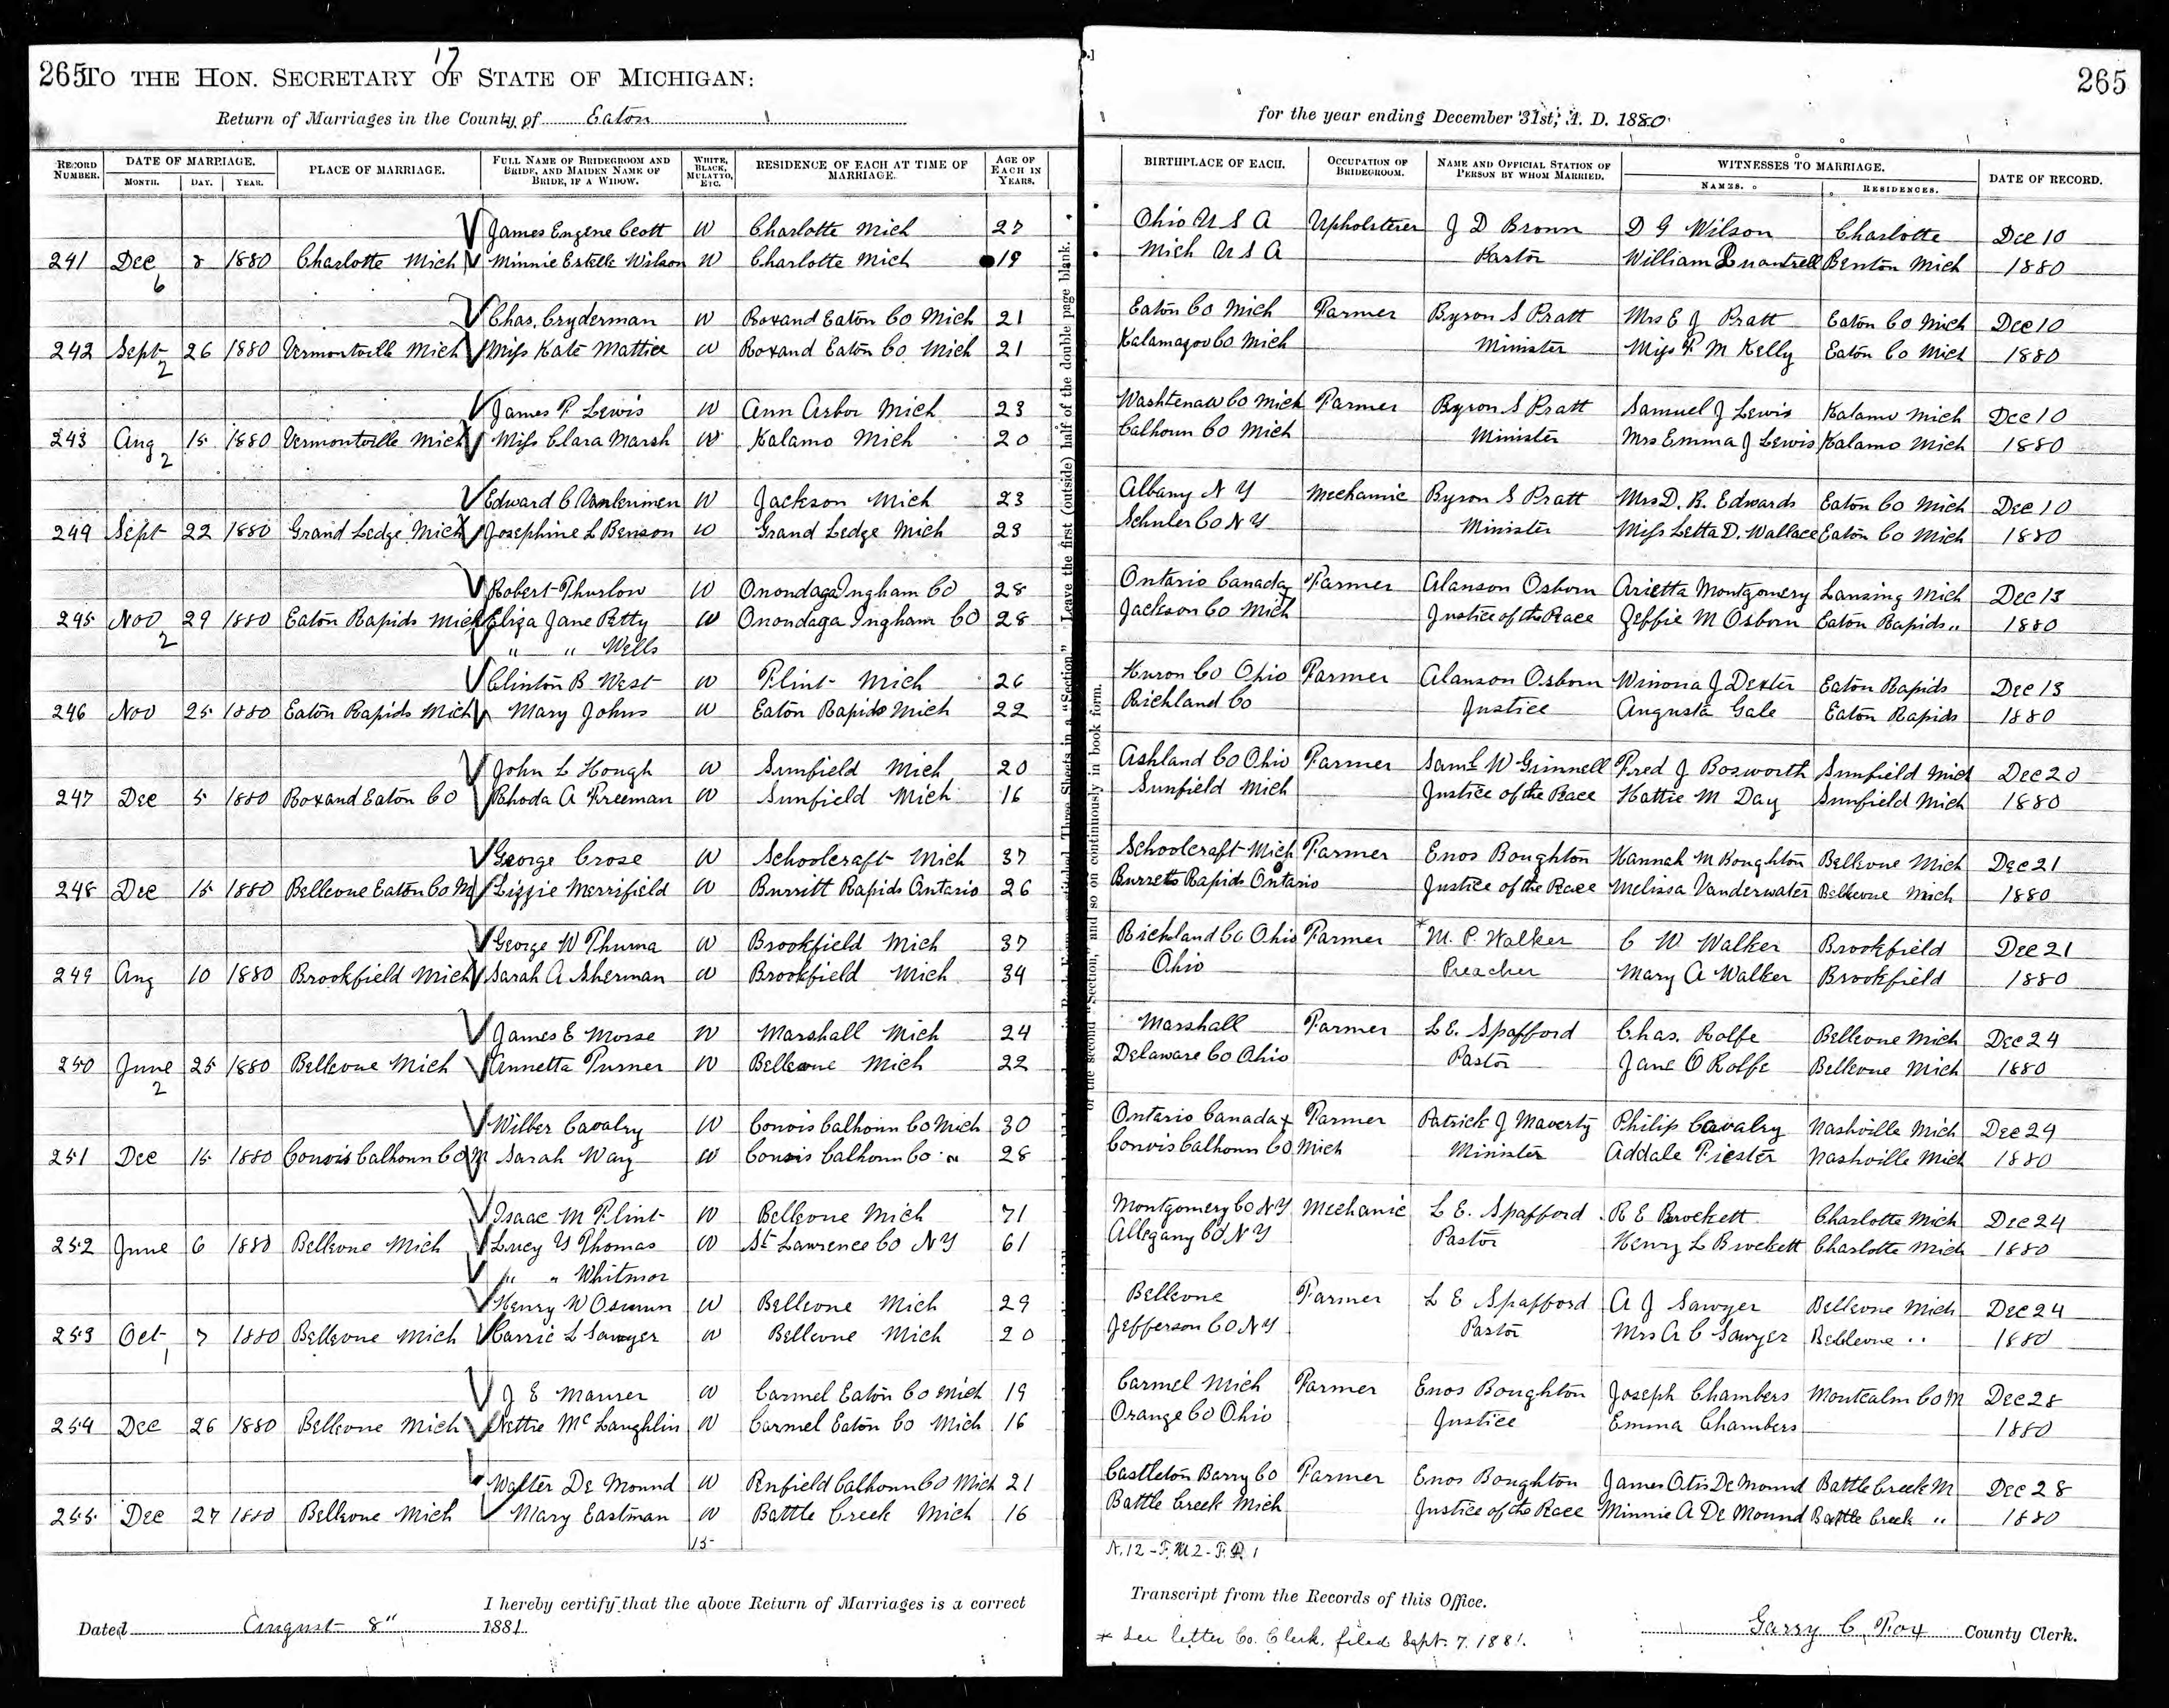 17
265 TO THE HON. SECRETARY OF STATE OF MICHIGAN: 265
Return of Marriages in the County of Eaton for the year ending December 31st, A. D. 1880.
RECORD NUMBER. DATE OF MARRIAGE. PLACE OF MARRIAGE. FULL NAME OF BRIDEGROOM AND BRIDE, AND MAIDEN NAME OF BRIDE, IF A WIDOW. WHITE, BLACK, MULATTO, ETC. RESIDENCE OF EACH AT TIME OF MARRIAGE. AGE OF EACH IN YEARS. BIRTHPLACE OF EACH. OCCUPATION OF BRIDEGROOM. NAME AND OFFICIAL STATION OF PERSON BY WHOM MARRIED. WITNESSES TO MARRIAGE. DATE OF RECORD.
MONTH. DAY. YEAR. NAMES. RESIDENCES.
James Eugene Cott W Charlotte Mich 27 Ohio U S A Upholsterer J D Bronn D G Wilson Charlotte Dec 10
241 Dec 8 1880 Charlotte Mich Minnie Estelle Wilson W Charlotte Mich 19 Mich U S A Pastor William Quantrell Benton Mich 1880
6
Chas. Cryderman W Roxand Eaton Co Mich 21 Eaton Co Mich Farmer Byron S Pratt Mrs E J Pratt Eaton Co Mich Dec 10
242 Sept 26 1880 Vermontville Mich Miss Kate Mattice W Roxand Eaton Co Mich 21 Kalamazoo Co Mich Minister Miss F M Kelly Eaton Co Mich 1880
2
James P Lewis W Ann Arbor Mich 23 Washtenaw Co Mich Farmer Byron S Pratt Samuel J Lewis Kalamo Mich Dec 10
243 Aug 15 1880 Vermontville Mich Miss Clara Marsh W Kalamo Mich 20 Calhoun Co Mich Minister Mrs Emma J Lewis Kalamo Mich 1880
2
Edward C W Jackson Mich 23 Albany N Y Mechanic Byron S Pratt Mrs D. R. Edwards Eaton Co Mich Dec 10
244 Sept 22 1880 Grand Ledge Mich Josephine L Benson W Grand Ledge Mich 23 Schuler Co N Y Minister Miss Letta D. Wallace Eaton Co Mich 1880
Robert Thurlow W Onondaga Ingham Co 28 Ontario Canada Farmer Alanson Osborn Arietta Montgomery Lansing Mich Dec 13
245 Nov 29 1880 Eaton Rapids Mich Eliza Jane Petty W Onondaga Ingham Co 28 Jackson Co Mich Justice of the Peace Zeffie M Osborn Eaton Rapids " 1880
2
" " Wells
Clinton B West W Flint Mich 26 Huron Co Ohio Farmer Alanson Osborn Winona J Dexter Eaton Rapids Dec 13
246 Nov 25 1880 Eaton Rapids Mich Mary Johns W Eaton Rapids Mich 22 Richland Co Justice Augusta Gale Eaton Rapids 1880
John L Hough W Sunfield Mich 20 Ashland Co Ohio Farmer Saml W Grinnell Fred J Bosworth Sunfield Mich Dec 20
247 Dec 5 1880 Roxand Eaton Co Rhoda A Freeman W Sunfield Mich 16 Sunfield Mich Justice of the Peace Hattie M Day Sunfield Mich 1880
George Crose W Schoolcraft Mich 37 Schoolcraft Mich Farmer Enos Boughton Hannah M Boughton Bellevue Mich Dec 21
248 Dec 15 1880 Bellevue Eaton Co M Lizzie Merrifield W Burritt Rapids Ontario 26 Burretts Rapids Ontario Justice of the Peace Melissa Vanderwater Bellevue Mich 1880
George W Thuma W Brookfield Mich 37 Richland Co Ohio Farmer * M. P. Walker C W Walker Brookfield Dec 21
249 Aug 10 1880 Brookfield Mich Sarah A Sherman W Brookfield Mich 34 Ohio Preacher Mary A Walker Brookfield 1880
James E Morse W Marshall Mich 24 Marshall Farmer L E. Spafford Chas. Rolfe Bellevue Mich Dec 24
250 June 25 1880 Bellevue Mich Annetta Turner W Bellevue Mich 22 Delaware Co Ohio Pastor Jane O Rolfe Bellevue Mich 1880
2
Wilber Cavalry W Convis Calhoun Co Mich 30 Ontario Canada Farmer Patrick J Maverty Philip Cavalry Nashville Mich Dec 24
251 Dec 15 1880 Convis Calhoun Co M Sarah Way W Convis Calhoun Co " 28 Convis Calhoun Co Mich Minister Addale Fiester Nashville Mich 1880
Isaac M Flint W Bellevue Mich 71 Montgomery Co N Y Mechanic L E. Spafford R E Brockett Charlotte Mich Dec 24
252 June 6 1880 Bellevue Mich Lucy Y Thomas W St Lawrence Co N Y 61 Allegany Co N Y Pastor Henry L Brockett Charlotte Mich 1880
" " Whitmor
Henry W Osmun W Bellevue Mich 29 Bellevue Farmer L E Spafford A J Sawyer Bellevue Mich Dec 24
253 Oct 7 1880 Bellevue Mich Carrie L Sawyer W Bellevue Mich 20 Jefferson Co N Y Pastor Mrs A C Sawyer Bellevue " 1880
1
J E Maurer W Carmel Eaton Co Mich 19 Carmel Mich Farmer Enos Boughton Joseph Chambers Montcalm Co M Dec 28
254 Dec 26 1880 Bellevue Mich Nettie McLaughlin W Carmel Eaton Co Mich 16 Orange Co Ohio Justice Emma Chambers 1880
Walter De Mound W Penfield Calhoun Co Mich 21 Castleton Barry Co Farmer Enos Boughton James Otis De Mound Battle Creek M Dec 28
255 Dec 27 1880 Bellevue Mich Mary Eastman W Battle Creek Mich 16 Battle Creek Mich Justice of the Peace Minnie A De Mound Battle Creek " 1880
15
N. 12 - F. M 2 - F. 1
I hereby certify that the above Return of Marriages is a correct Transcript from the Records of this Office.
Dated August 8" 1881. Garry C. Fox County Clerk.
* See letter Co. Clerk, filed Sept. 7. 1881.